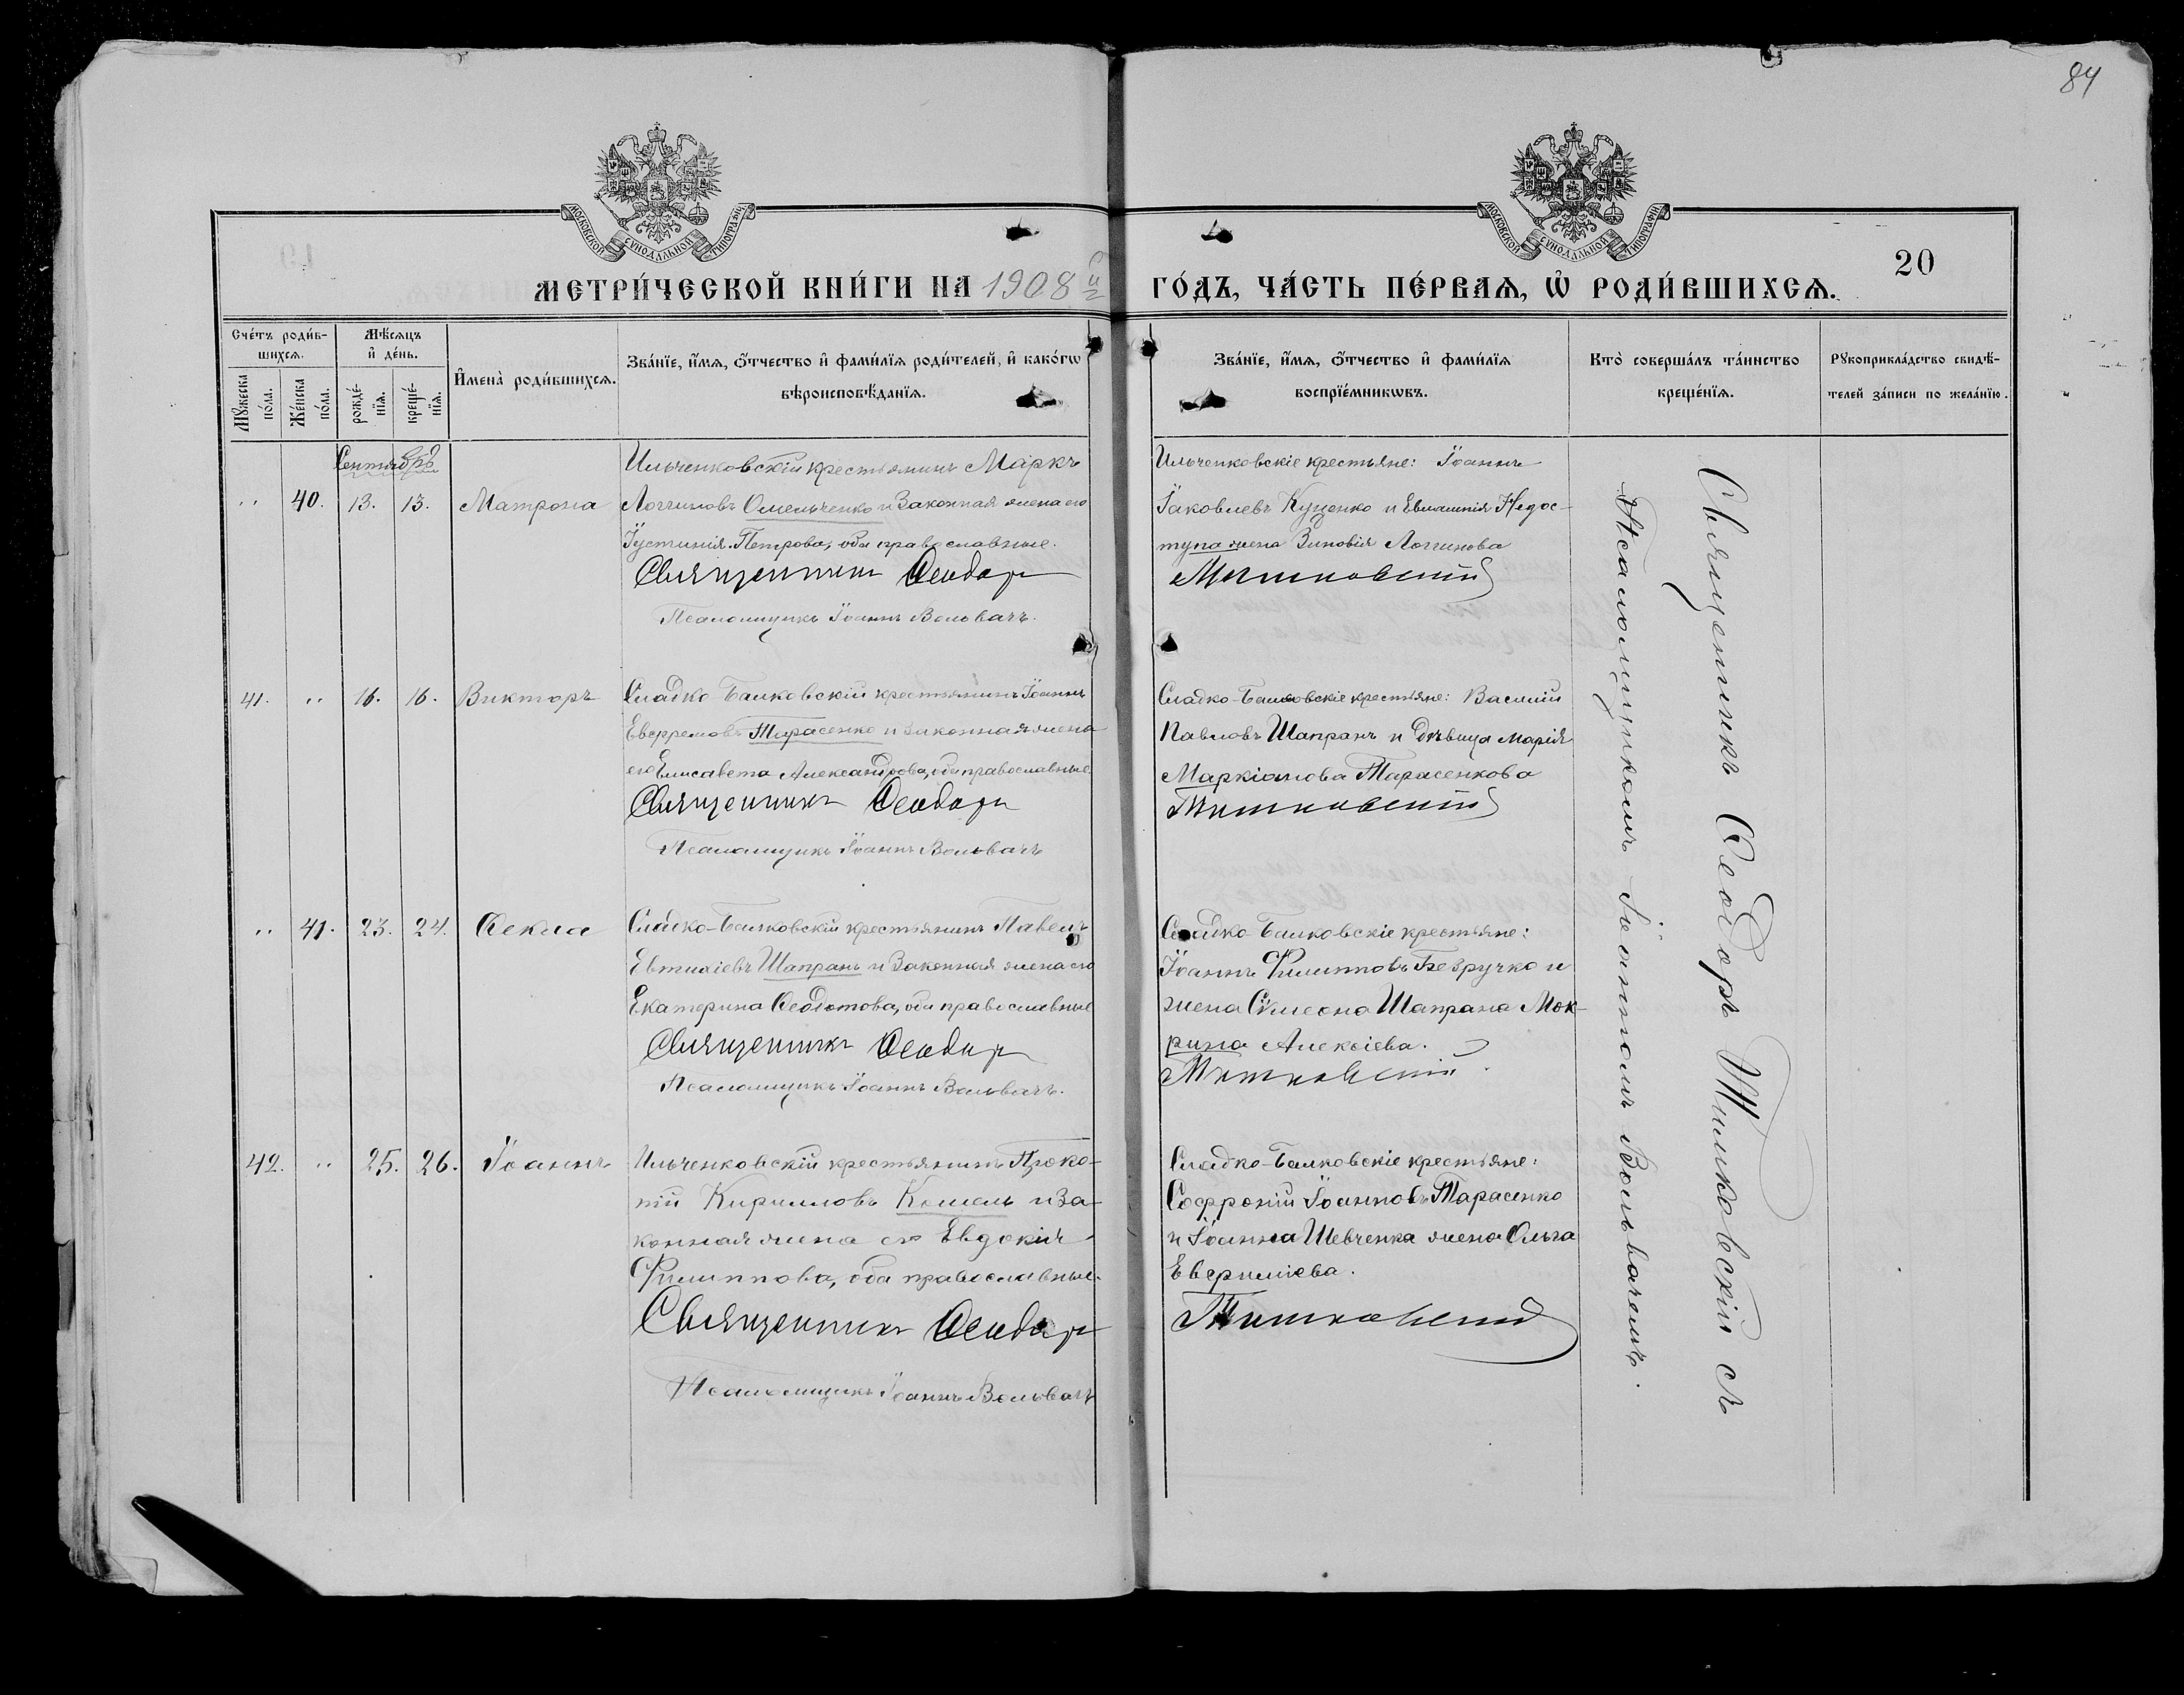 84
МОСКОВСКОЙ СѴНОДАЛЬНОЙ ТИПОГРАФІИ
МОСКОВСКОЙ СѴНОДАЛЬНОЙ ТИПОГРАФІИ
20
МЕТРИ́ЧЕСКОЙ КНИ́ГИ НА 1908 й ГО́ДЪ, ЧА́СТЬ ПЕ́РВАѦ, Ѡ҆ РОДИ́ВШИХСѦ.
Сче́тъ роди́в-
шихсѧ.
Мѣ́сѧцъ
и҆ де́нь.
Мꙋ́жеска
по́ла.
Же́нска
по́ла.
рожде́-
нїѧ.
креще́-
нїѧ.
И҆мена̀ роди́вшихсѧ.
Зва́нїе, и҆́мѧ, ѻ҆́тчество и҆ фами́лїѧ роди́телей, и҆ како́гѡ
вѣроисповѣ́данїѧ.
Зва́нїе, и҆́мѧ, ѻ҆́тчество и҆ фами́лїѧ
воспрїе́мникѡвъ.
Кто̀ соверша́лъ та́инство
креще́нїѧ.
Рꙋкоприкла́дство свидѣ́-
телей за́писи по жела́нїю.
Сентябрь
" 40. 13. 13. Матрона
Ильченковскій крестьянинъ Маркъ
Логгиновъ Омельченко и Законная жена его
Іустинія Петрова, оба православные.
Священникъ Ѳеодоръ
Псаломщикъ Іоаннъ Вольвачъ.
Ильченковскіе крестьяне: Іоаннъ
Іаковлевъ Куценко и Евлампія Недос-
тупа жена Зиновія Логгинова
Тишковскій
41. " 16. 16. Викторъ
Сладко-Балковскій крестьянинъ Іоаннъ
Евфремовъ Тарасенко и законная жена
его Елисавета Александрова, оба православные.
Священникъ Ѳеодоръ
Псаломщикъ Іоаннъ Вольвачъ
Сладко-Балковскіе крестьяне: Василій
Павловъ Шапранъ и дѣвица Марія
Маркіанова Тарасенкова
Тишковскій
" 41. 23. 24. Ѳекла
Сладко-Балковскій крестьянинъ Павелъ
Евтихіевъ Шапранъ и Законная жена его
Екатерина Ѳеодотова, оба православные
Священникъ Ѳеодоръ
Псаломщикъ Іоаннъ Вольвачъ.
Сладко-Балковскіе крестьяне:
Іоаннъ Филипповъ Безручко и
жена Сѵмеона Шапрана Мок-
рина Алексіева.
Тишковскій
42. " 25. 26. Іоаннъ
Ильченковскій крестьянинъ Проко-
пій Кирилловъ Кошель и За-
конная жена его Евдокія
Филиппова, оба православные.
Священникъ Ѳеодоръ
Псаломщикъ Іоаннъ Вольвачъ
Сладко-Балковскіе крестьяне:
Софроній Іоанновъ Тарасенко
и Іоанна Шевченка жена Ольга
Тишковскій
Священникъ Ѳеодоръ Тишковскій съ
Псаломщикомъ Іоанномъ Вольвачемъ.